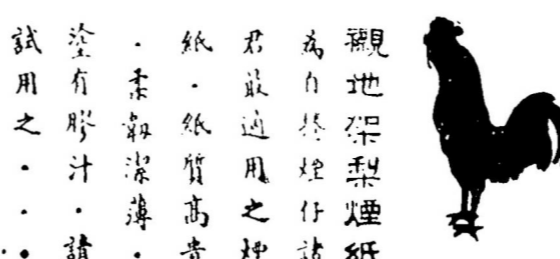 襯地架梨煙紙
為自捲煙仔諸
君最適用之煙
紙・紙質高貴
・柔韌潔薄・
塗有膠汁・請
試用之・・・